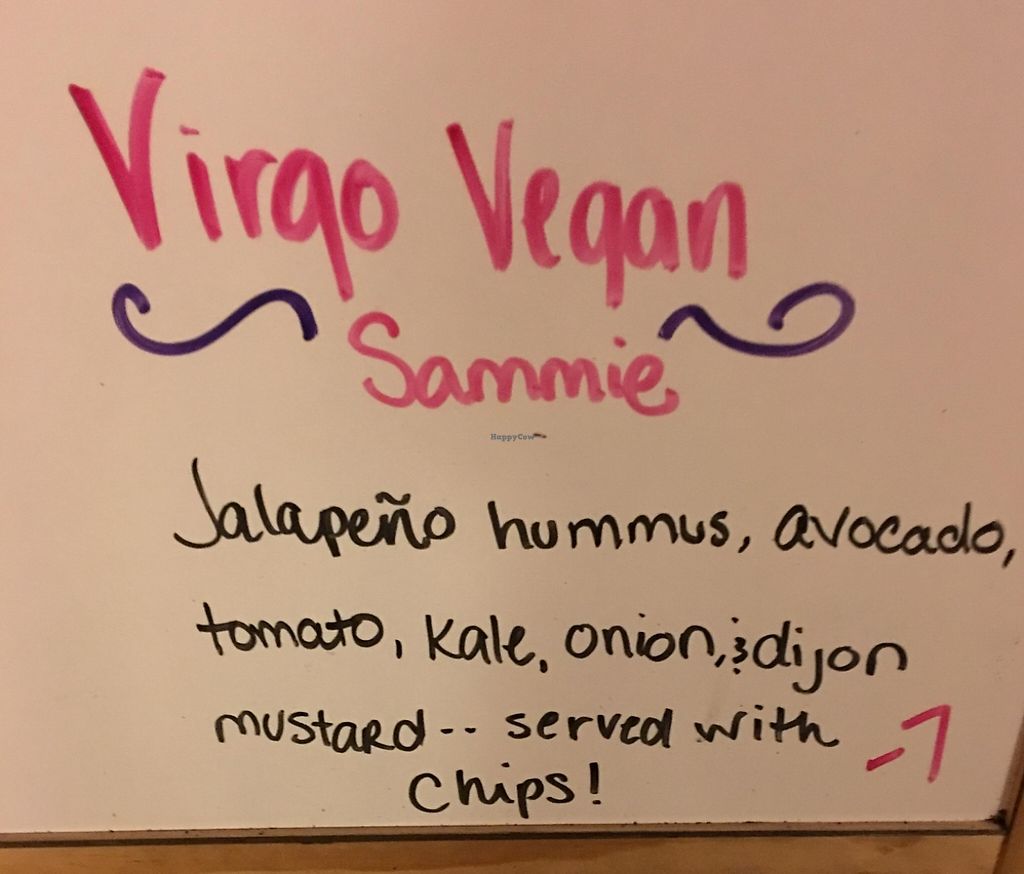 Virgo Vegan
Sammie
HappyCow
Jalapeño hummus, avocado,
tomato, kale, onion, & dijon
mustard -- served with
chips! -7